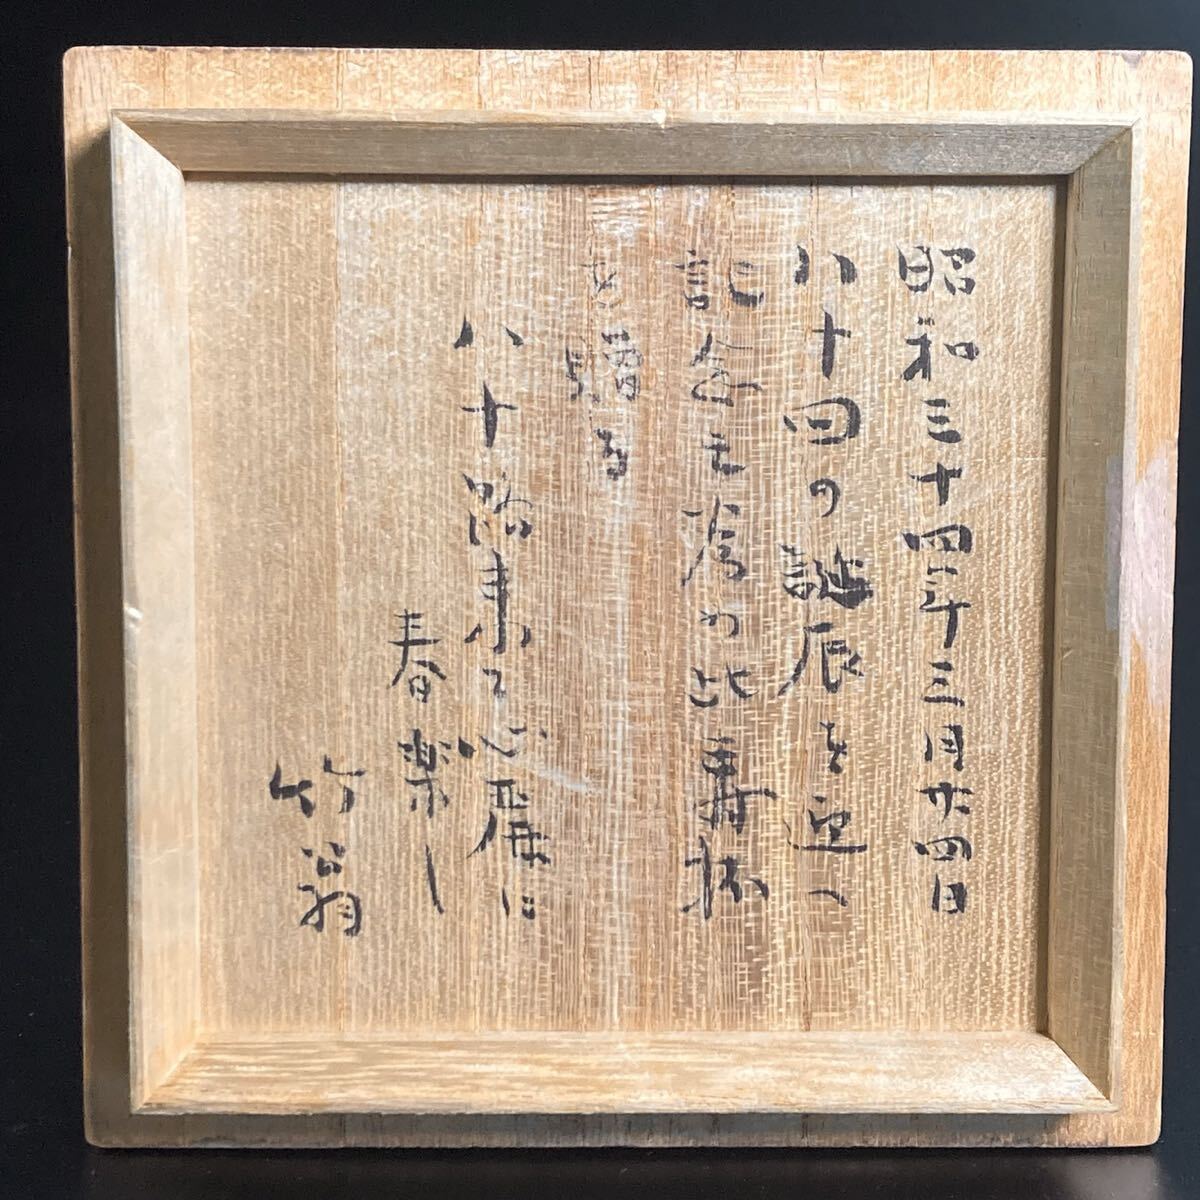 昭和三十四年三月廿四日
八十回の誕辰を迎へ
記念の為め此寿杯
を贈る
八十路来て心麗に
春楽し
竹翁